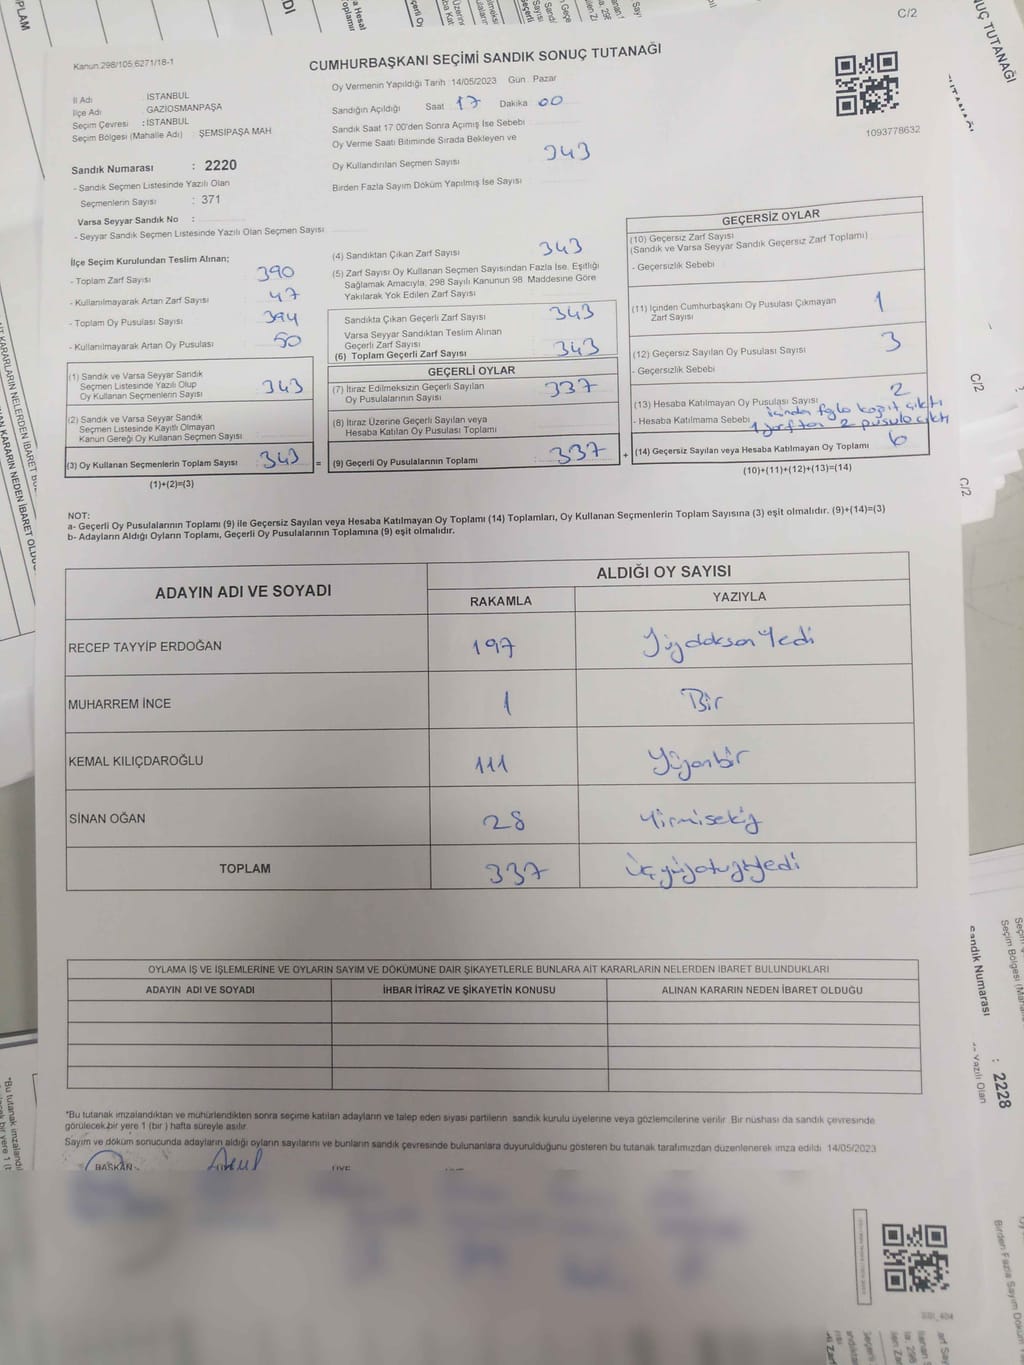 C/2
Kanun 298/105,6271/18-1
CUMHURBAŞKANI SEÇİMİ SANDIK SONUÇ TUTANAĞI
1093778632
İl Adı : İSTANBUL
İlçe Adı : GAZİOSMANPAŞA
Seçim Çevresi : İSTANBUL
Seçim Bölgesi (Mahalle Adı) : ŞEMSİPAŞA MAH
Sandık Numarası : 2220
- Sandık Seçmen Listesinde Yazılı Olan
Seçmenlerin Sayısı : 371
Varsa Seyyar Sandık No :
- Seyyar Sandık Seçmen Listesinde Yazılı Olan Seçmen Sayısı
Oy Vermenin Yapıldığı Tarih : 14/05/2023 Gün : Pazar
Sandığın Açıldığı Saat 17 Dakika 00
Sandık Saat 17:00'den Sonra Açımış İse Sebebi
Oy Verme Saati Bitiminde Sırada Bekleyen ve
Oy Kullandırılan Seçmen Sayısı 343
Birden Fazla Sayım Döküm Yapılmış İse Sayısı
İlçe Seçim Kurulundan Teslim Alınan;
- Toplam Zarf Sayısı 390
- Kullanılmayarak Artan Zarf Sayısı 47
- Toplam Oy Pusulası Sayısı 394
- Kullanılmayarak Artan Oy Pusulası 50
(1) Sandık ve Varsa Seyyar Sandık
Seçmen Listesinde Yazılı Olup
Oy Kullanan Seçmenlerin Sayısı 343
(2) Sandık ve Varsa Seyyar Sandık
Seçmen Listesinde Kayıtlı Olmayan
Kanun Gereği Oy Kullanan Seçmen Sayısı
(3) Oy Kullanan Seçmenlerin Toplam Sayısı 343 =
(1)+(2)=(3)
(4) Sandıktan Çıkan Zarf Sayısı 343
(5) Zarf Sayısı Oy Kullanan Seçmen Sayısından Fazla İse, Eşitliği
Sağlamak Amacıyla, 298 Sayılı Kanunun 98. Maddesine Göre
Yakılarak Yok Edilen Zarf Sayısı
Sandıkta Çıkan Geçerli Zarf Sayısı 343
Varsa Seyyar Sandıktan Teslim Alınan
Geçerli Zarf Sayısı
(6) Toplam Geçerli Zarf Sayısı 343
GEÇERLİ OYLAR
(7) İtiraz Edilmeksizin Geçerli Sayılan
Oy Pusulalarının Sayısı 337
(8) İtiraz Üzerine Geçerli Sayılan veya
Hesaba Katılan Oy Pusulası Toplamı
(9) Geçerli Oy Pusulalarının Toplamı 337 +
GEÇERSİZ OYLAR
(10) Geçersiz Zarf Sayısı
(Sandık ve Varsa Seyyar Sandık Geçersiz Zarf Toplamı)
- Geçersizlik Sebebi
(11) İçinden Cumhurbaşkanı Oy Pusulası Çıkmayan
Zarf Sayısı 1
(12) Geçersiz Sayılan Oy Pusulası Sayısı 3
- Geçersizlik Sebebi
(13) Hesaba Katılmayan Oy Pusulası Sayısı 2
- Hesaba Katılmama Sebebi içinden fazla kağıt çıktı
1 zarftan 2 pusula çıktı
(14) Geçersiz Sayılan veya Hesaba Katılmayan Oy Toplamı 6
(10)+(11)+(12)+(13)=(14)
NOT:
a- Geçerli Oy Pusulalarının Toplamı (9) ile Geçersiz Sayılan veya Hesaba Katılmayan Oy Toplamı (14) Toplamları, Oy Kullanan Seçmenlerin Toplam Sayısına (3) eşit olmalıdır. (9)+(14)=(3)
b- Adayların Aldığı Oyların Toplamı, Geçerli Oy Pusulalarının Toplamına (9) eşit olmalıdır.
ADAYIN ADI VE SOYADI
ALDIĞI OY SAYISI
RAKAMLA YAZIYLA
RECEP TAYYİP ERDOĞAN 197 Yüzdoksan Yedi
MUHARREM İNCE 1 Bir
KEMAL KILIÇDAROĞLU 111 Yüzonbir
SİNAN OĞAN 28 Yirmisekiz
TOPLAM 337 üçyüzotuzYedi
OYLAMA İŞ VE İŞLEMLERİNE VE OYLARIN SAYIM VE DÖKÜMÜNE DAİR ŞİKAYETLERLE BUNLARA AİT KARARLARIN NELERDEN İBARET BULUNDUKLARI
ADAYIN ADI VE SOYADI İHBAR İTİRAZ VE ŞİKAYETİN KONUSU ALINAN KARARIN NEDEN İBARET OLDUĞU
*Bu tutanak imzalandıktan ve mühürlendikten sonra seçime katılan adayların ve talep eden siyasi partilerin sandık kurulu üyelerine veya gözlemcilerine verilir. Bir nüshası da sandık çevresinde
görülecek bir yere 1 (bir ) hafta süreyle asılır.
Sayım ve döküm sonucunda adayların aldığı oyların sayılarını ve bunların sandık çevresinde bulunanlara duyurulduğunu gösteren bu tutanak tarafımızdan düzenlenerek imza edildi. 14/05/2023
BAŞKAN
C/2
C/2
Sandık Numarası : 2228